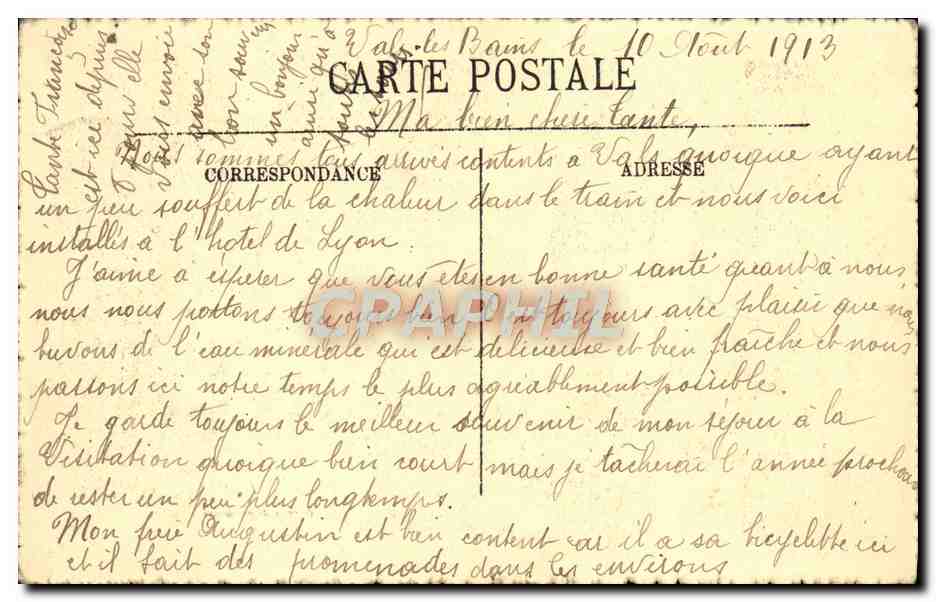 Vals-les Bains le 10 Août 1913
CARTE POSTALE
Ma bien chère Tante,
CORRESPONDANCE
ADRESSE
Nous sommes tous arrivés contents à Vals quoique ayant
un peu souffert de la chaleur dans le train et nous voici
installés à l'hôtel de Lyon.
J'aime à espérer que vous êtes en bonne santé quant à nous
nous nous portons toujours bien c'est toujours avec plaisir que nous
buvons de l'eau minérale qui est délicieuse et bien fraîche et nous
passons ici notre temps le plus agréablement possible.
Je garde toujours le meilleur souvenir de mon séjour à la
Visitation quoique bien court mais je tâcherai l'année prochaine
de rester un peu plus longtemps.
Mon frère Augustin est bien content car il a sa bicyclette ici
et il fait des promenades dans les environs
Tante Françoise
est ici depuis
8 jours elle
vous envoie
avec son
bon souvenir
un bonjour
ainsi qu'à
toutes
CPAPHIL